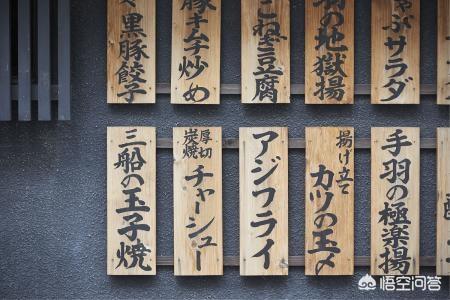 ゃぶサラダ
羽の地獄揚
こねぎ豆腐
豚キムチ炒め
黒豚餃子
手羽の極楽揚
揚げ立て
カツの玉〆
アジフライ
厚切
炭焼
チャーシュー
三船の玉子焼
悟空问答